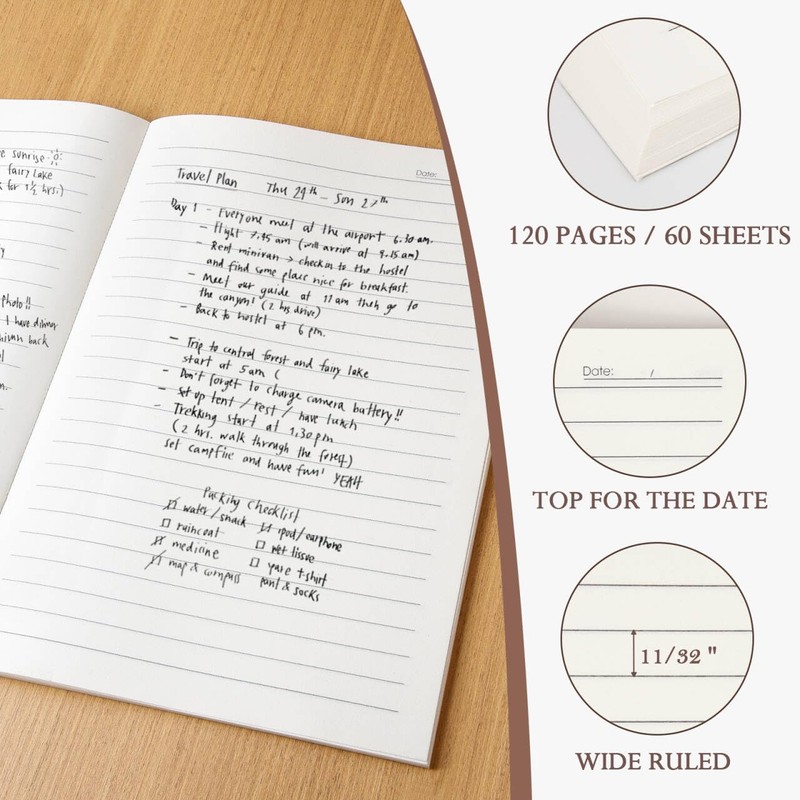 e sunrise
fairy lake
k for 1½ hrs.)
photo!!
I have dinner
nivan back
Date:
Travel Plan Thu 24th - Sun 27th
Day 1 - Everyone meet at the airport 6.30 am.
- Flight 7.45 am (will arrive at 9.15 am)
- Rent minivan → checkin to the hostel
and find some place nice for breakfast.
- Meet our guide at 11 am then go to
the canyon! (2 hrs drive)
- Back to hostel at 6 pm.
- Trip to central forest and fairy lake
start at 5am (
- Don't forget to charge camera battery!!
- Set up tent / rest / have lunch
- Trekking start at 1.30 pm
(2 hrs. walk through the forest)
set campfire and have fun! YEAH
Packing Checklist
water/snack ipod/earphone
raincoat wet tissue
medicine t-shirt
map & compass pant & socks
120 PAGES / 60 SHEETS
Date: /
TOP FOR THE DATE
11/32 "
WIDE RULED